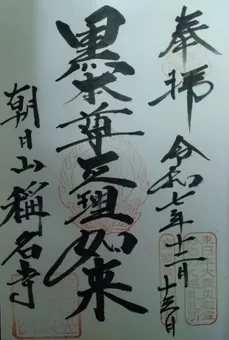 奉拝
令和七年十二月十三日
黒本尊三理如来
朝日山稱名寺